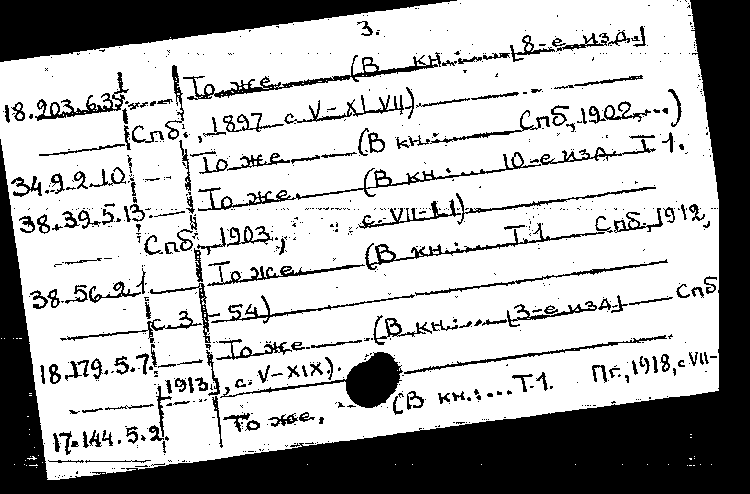 3.
18.203.6.35 То же (В кн.: ... [8-е изд.]
Спб., 1897 с. V-XLVII)
34.9.2.10 То же (В кн.: ... Спб, 1902, ...)
38.39.5.13 То же. (В кн.: ... 10-е изд. Т 1.
Спб, 1903, с. VII-LI)
38.56.2.1. То же (В кн.: ... Т. 1 Спб, 1912,
с. 3 - 54)
18.179.5.7. То же (В кн.: ... [3-е изд] Спб
[1913], с. V-XIX).
17.144.5.2. То же, (В кн.: ... Т-1. Пг., 1918, с VII-